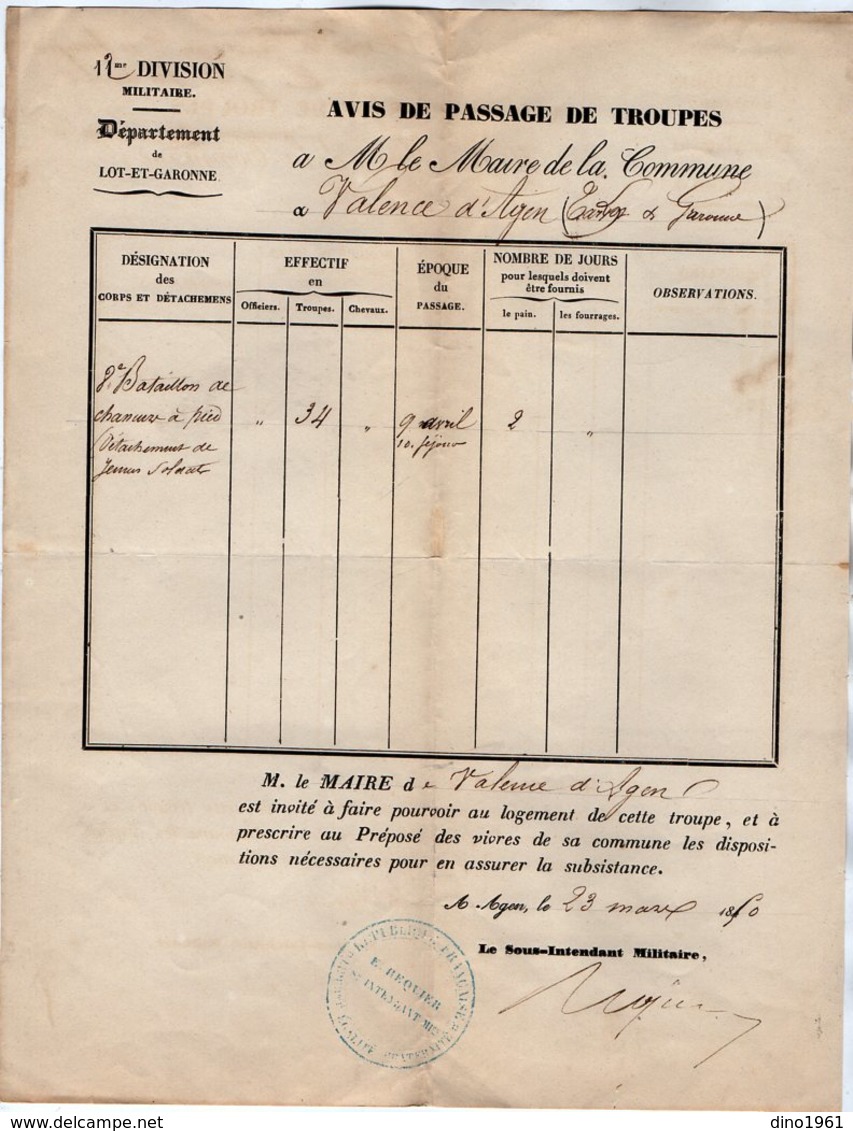 12me DIVISION
MILITAIRE.
Département
de
LOT-ET-GARONNE
AVIS DE PASSAGE DE TROUPES
a M le Maire de la Commune
a Valence d'Agen ( & Garonne)
DÉSIGNATION
des
CORPS ET DÉTACHEMENS
EFFECTIF
en
Officiers.
Troupes.
Chevaux.
ÉPOQUE
du
PASSAGE.
NOMBRE DE JOURS
pour lesquels doivent
être fournis
le pain.
les fourrages.
OBSERVATIONS.
8e Bataillon de
chasseurs à pied
Détachement de
jeunes soldats
"
34
"
9 avril
10. séjour
2
"
M. le MAIRE de Valence d'Agen
est invité à faire pourvoir au logement de cette troupe, et à
prescrire au Préposé des vivres de sa commune les disposi-
tions nécessaires pour en assurer la subsistance.
A Agen, le 23 mars 1850
Le Sous-Intendant Militaire,
RÉPUBLIQUE FRANÇAISE
E. REQUIER
S. INTENDANT MRE
LIBERTÉ ÉGALITÉ FRATERNITÉ
dino1961